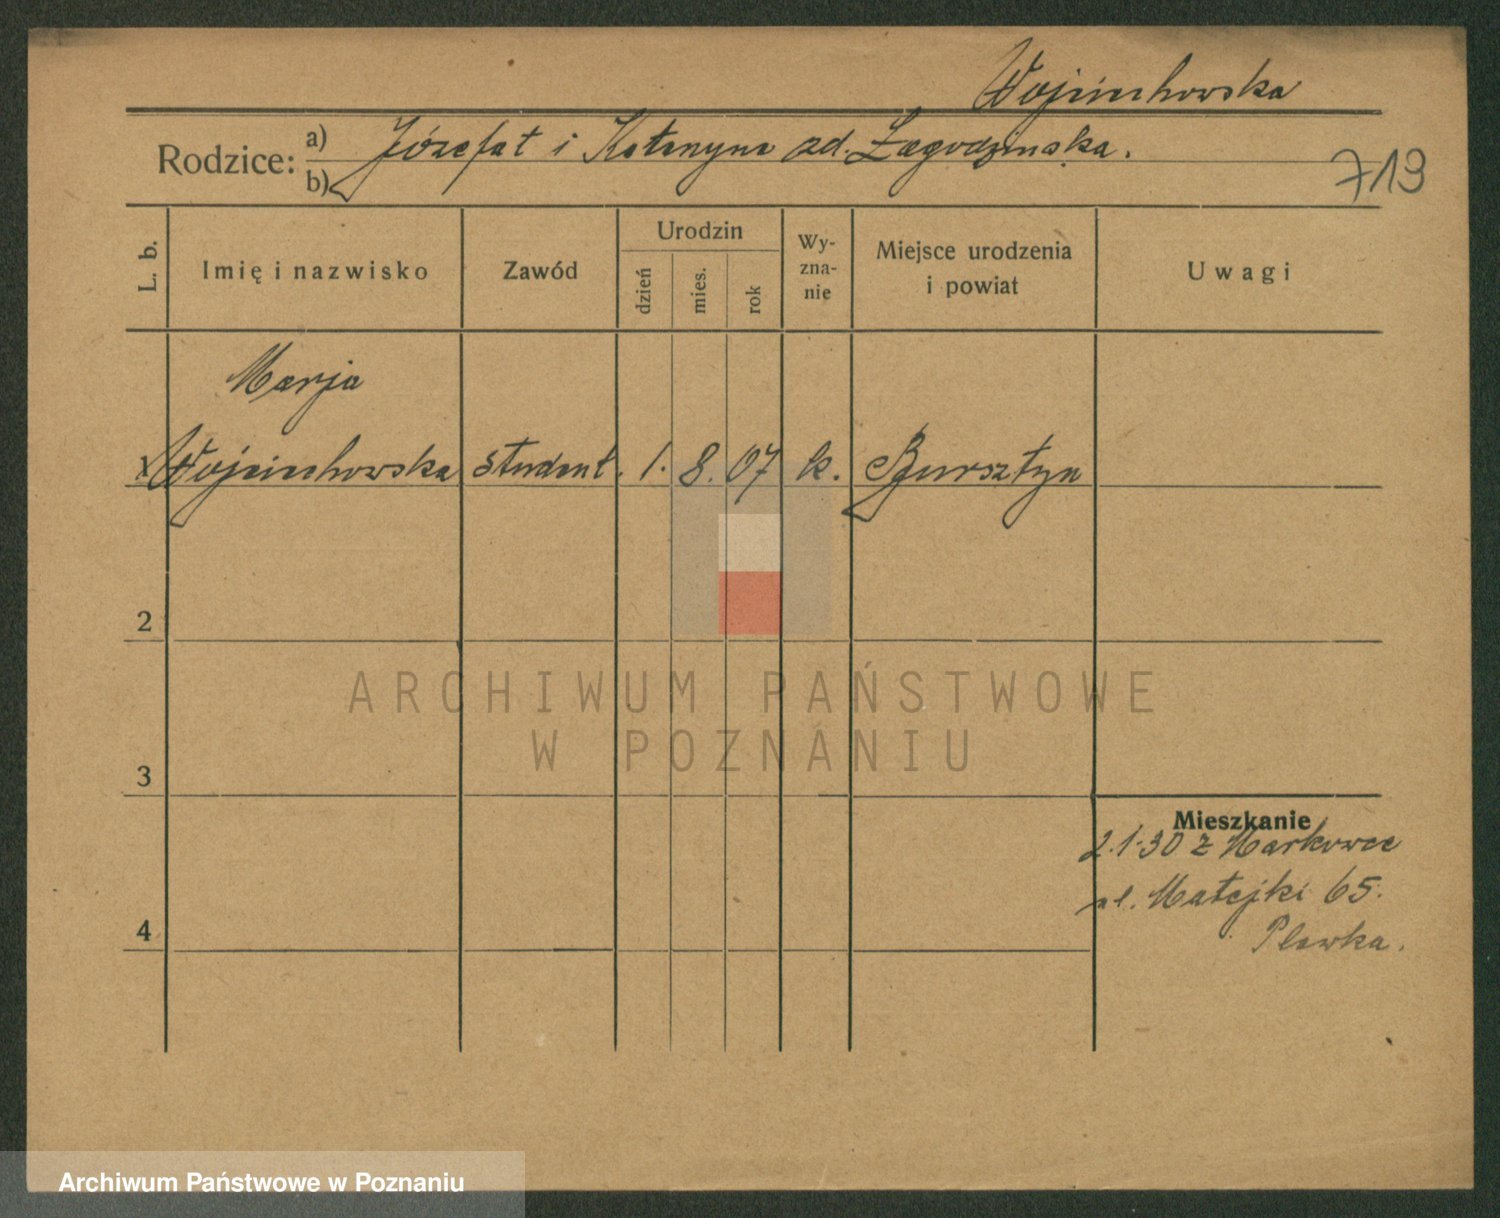 Wojciechowska
Rodzice: a) Józefat i Katarzyna zd. Łagodzinska.
b)
713
L. b.
Imię i nazwisko
Zawód
Urodzin
dzień
mies.
rok
Wy-
zna-
nie
Miejsce urodzenia
i powiat
Uwagi
Marja
1 Wojciechowska student. 1. 8. 07 k. Bursztyn
2
ARCHIWUM PAŃSTWOWE
W POZNANIU
3
Mieszkanie
2.1.30 z Markowce
4
ul. Matejki 65.
Plewka.
Archiwum Państwowe w Poznaniu